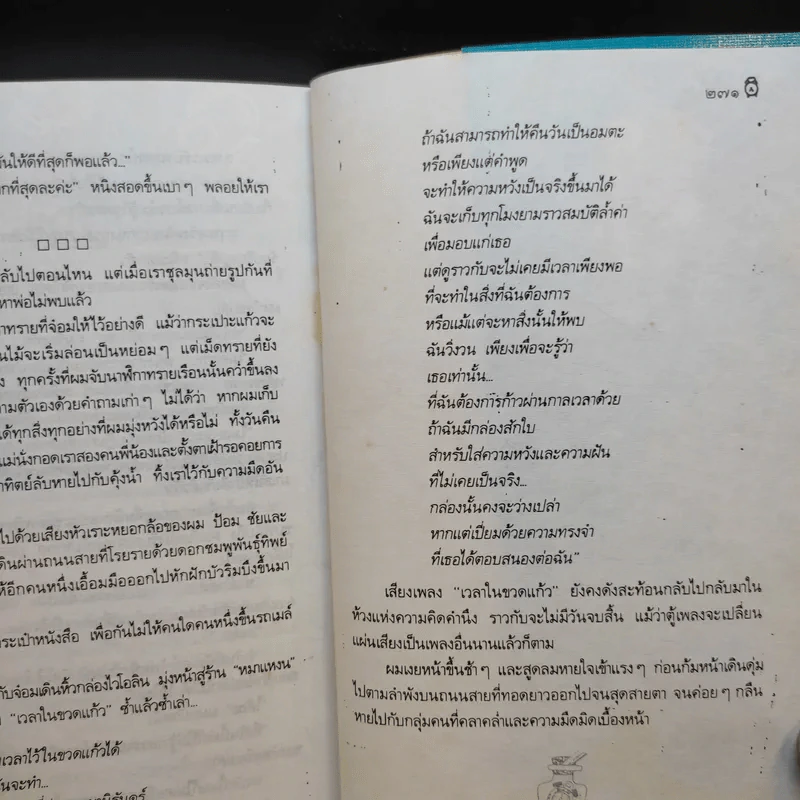 ันให้ดีที่สุดก็พอแล้ว..."
กที่สุดละค่ะ" หนิงสอดขึ้นเบาๆ พลอยให้เรา
□ □ □
ลับไปตอนไหน แต่เมื่อเราชุลมุนถ่ายรูปกันที่
หาพ่อไม่พบแล้ว
าทรายที่จ๋อมให้ไว้อย่างดี แม้ว่ากระเปาะแก้วจะ
นไม้จะเริ่มล่อนเป็นหย่อมๆ แต่เม็ดทรายที่ยัง
ง ทุกครั้งที่ผมจับนาฬิกาทรายเรือนนั้นคว่ำขึ้นลง
ามตัวเองด้วยคำถามเก่าๆ ไม่ได้ว่า หากผมเก็บ
ได้ทุกสิ่งทุกอย่างที่ผมมุ่งหวังได้หรือไม่ ทั้งวันคืน
แม่นั่งกอดเราสองคนพี่น้องและตั้งตาเฝ้ารอคอยการ
าทิตย์ลับหายไปกับคุ้งน้ำ ทิ้งเราไว้กับความมืดอัน
ไปด้วยเสียงหัวเราะหยอกล้อของผม ป้อม ชัยและ
ดินผ่านถนนสายที่โรยรายด้วยดอกชมพูพันธุ์ทิพย์
ห้อีกคนหนึ่งเอื้อมมือออกไปหักฝักบัวริมบึงขึ้นมา
ระเป๋าหนังสือ เพื่อกันไม่ให้คนใดคนหนึ่งขึ้นรถเมล์
กับจ๋อมเดินหิ้วกล่องไวโอลิน มุ่งหน้าสู่ร้าน "หมาแหงน"
"เวลาในขวดแก้ว" ซ้ำแล้วซ้ำเล่า...
เวลาไว้ในขวดแก้วได้
ันจะทำ...
๒๗๑
ถ้าฉันสามารถทำให้คืนวันเป็นอมตะ
หรือเพียงแต่คำพูด
จะทำให้ความหวังเป็นจริงขึ้นมาได้
ฉันจะเก็บทุกโมงยามราวสมบัติล้ำค่า
เพื่อมอบแก่เธอ
แต่ดูราวกับจะไม่เคยมีเวลาเพียงพอ
ที่จะทำในสิ่งที่ฉันต้องการ
หรือแม้แต่จะหาสิ่งนั้นให้พบ
ฉันวิ่งวน เพียงเพื่อจะรู้ว่า
เธอเท่านั้น...
ที่ฉันต้องการก้าวผ่านกาลเวลาด้วย
ถ้าฉันมีกล่องสักใบ
สำหรับใส่ความหวังและความฝัน
ที่ไม่เคยเป็นจริง...
กล่องนั้นคงจะว่างเปล่า
หากแต่เปี่ยมด้วยความทรงจำ
ที่เธอได้ตอบสนองต่อฉัน"
เสียงเพลง "เวลาในขวดแก้ว" ยังคงดังสะท้อนกลับไปกลับมาใน
ห้วงแห่งความคิดคำนึง ราวกับจะไม่มีวันจบสิ้น แม้ว่าตู้เพลงจะเปลี่ยน
แผ่นเสียงเป็นเพลงอื่นนานแล้วก็ตาม
ผมเงยหน้าขึ้นช้าๆ และสูดลมหายใจเข้าแรงๆ ก่อนก้มหน้าเดินดุ่ม
ไปตามลำพังบนถนนสายที่ทอดยาวออกไปจนสุดสายตา จนค่อยๆ กลืน
หายไปกับกลุ่มคนที่คลาคล่ำและความมืดมิดเบื้องหน้า